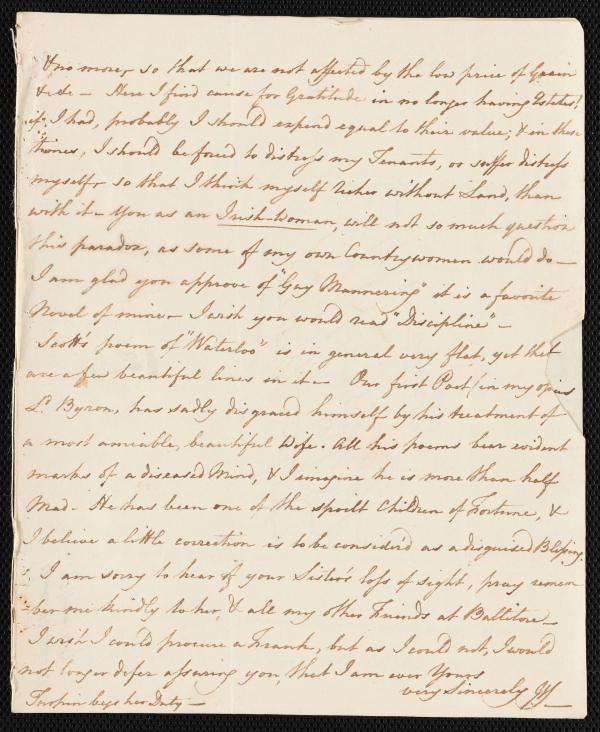 & no more, so that we are not affected by the low price of Grain
&c &c — Here I find cause for Gratitude in no longer having Estates!
if I had, probably I should expend equal to their value; & in these
times, I should be forced to distress my Tenants, or suffer distress
myself, so that I think myself richer without Land, than
with it — You as an Irish-Woman, will not so much question
this paradox, as some of my own Countrywomen would do —
I am glad you approve of "Guy Mannering" it is a favorite
Novel of mine — I wish you would read "Discipline" —
Scott's poem of "Waterloo" is in general very flat, yet ther
are a few beautiful lines in it — Our first Poet (in my opin
Ld. Byron, has sadly disgraced himself by his treatment of
a most amiable, beautiful Wife. All his poems bear evident
marks of a diseased Mind, & I imagine he is more than half
Mad — He has been one of the spoilt Children of Fortune, &
I believe a little correction is to be consider'd as a disguised Blessing.
I am sorry to hear of your Sister's loss of sight, pray remem
ber me kindly to her, & all my other Friends at Ballitore —
I wish I could procure a Frank, but as I could not, I would
not longer defer assuring you, that I am ever Yours
very Sincerely
begs her Duty —